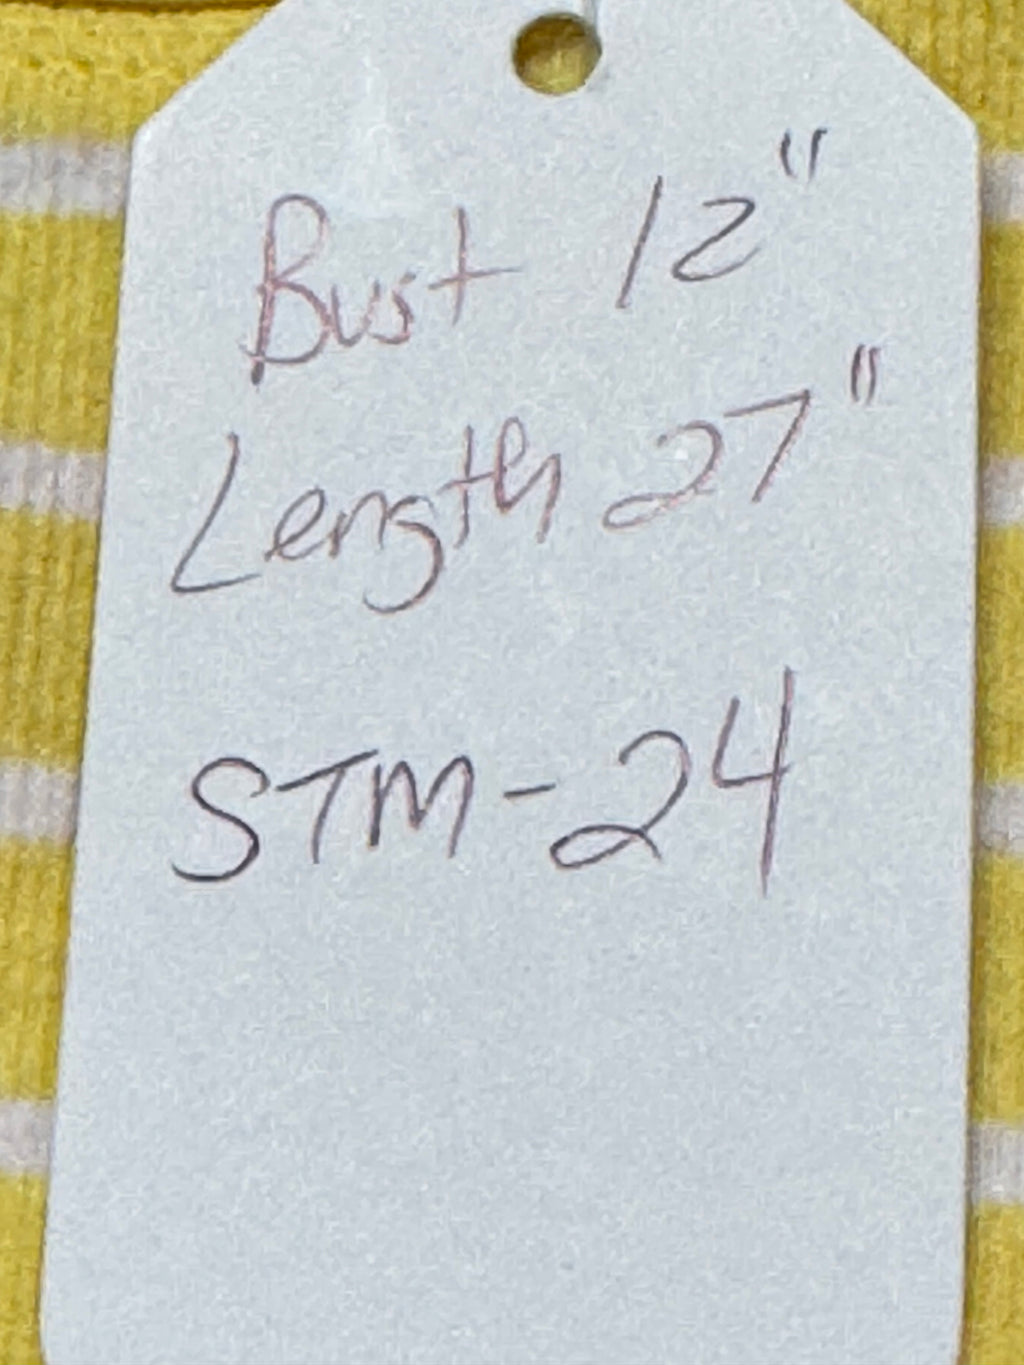 Bust 12"
Length 27"
STM-24